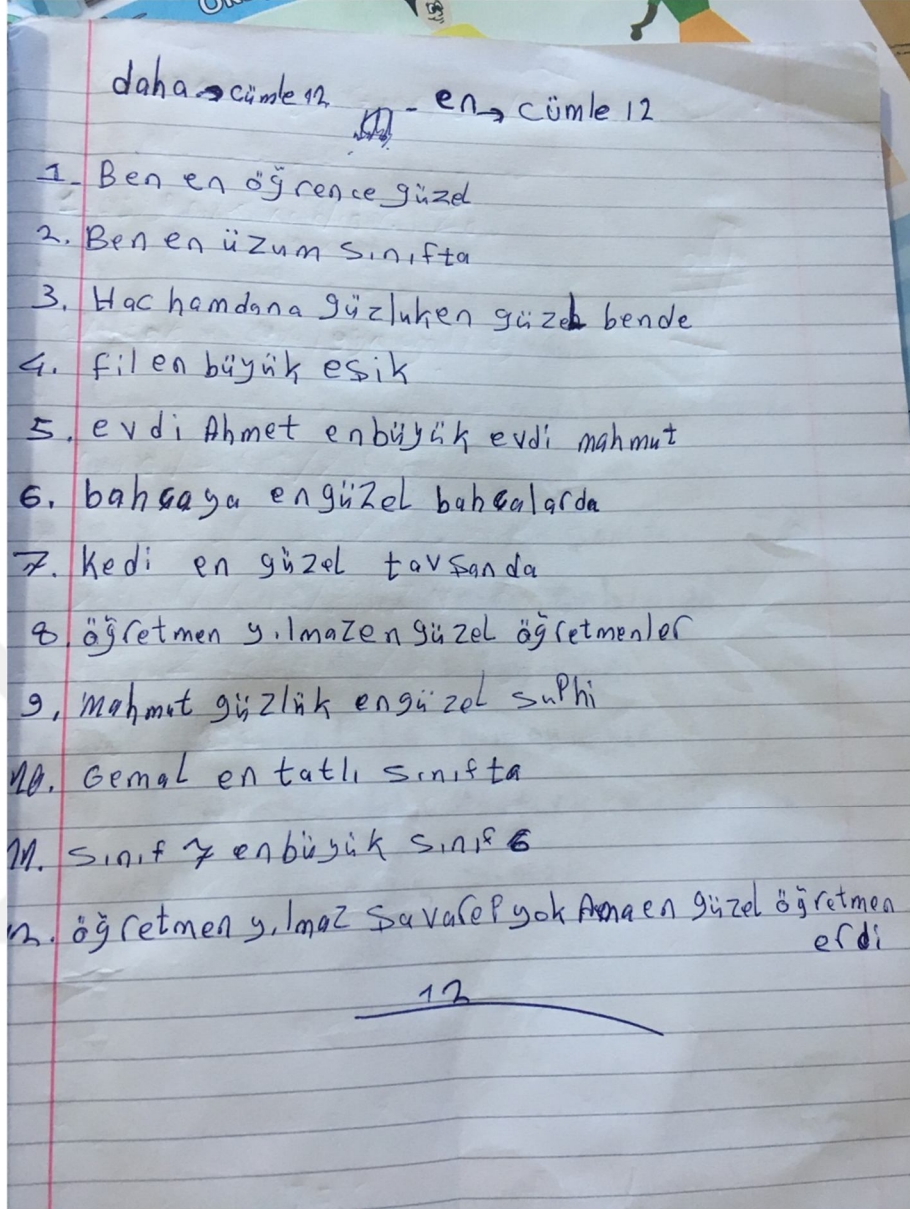 daha → cümle 12 - en → cümle 12
1. Ben en öğrence güzel
2. Ben en üzum sınıfta
3. Hac hamdana güzluken güzel bende
4. fil en büyük eşik
5. evdi Ahmet enbüyük evdi mahmut
6. bahçaya engüzel bahçalarda
7. kedi en güzel tavşanda
8. öğretmen yılmazen güzel öğretmenler
9. mahmut güzlük engüzel suphi
10. Gemal en tatlı sınıfta
11. Sınıf 7 enbüyük sınıf 6
12. öğretmen yılmaz yok Ama en güzel öğretmen
erdi
12